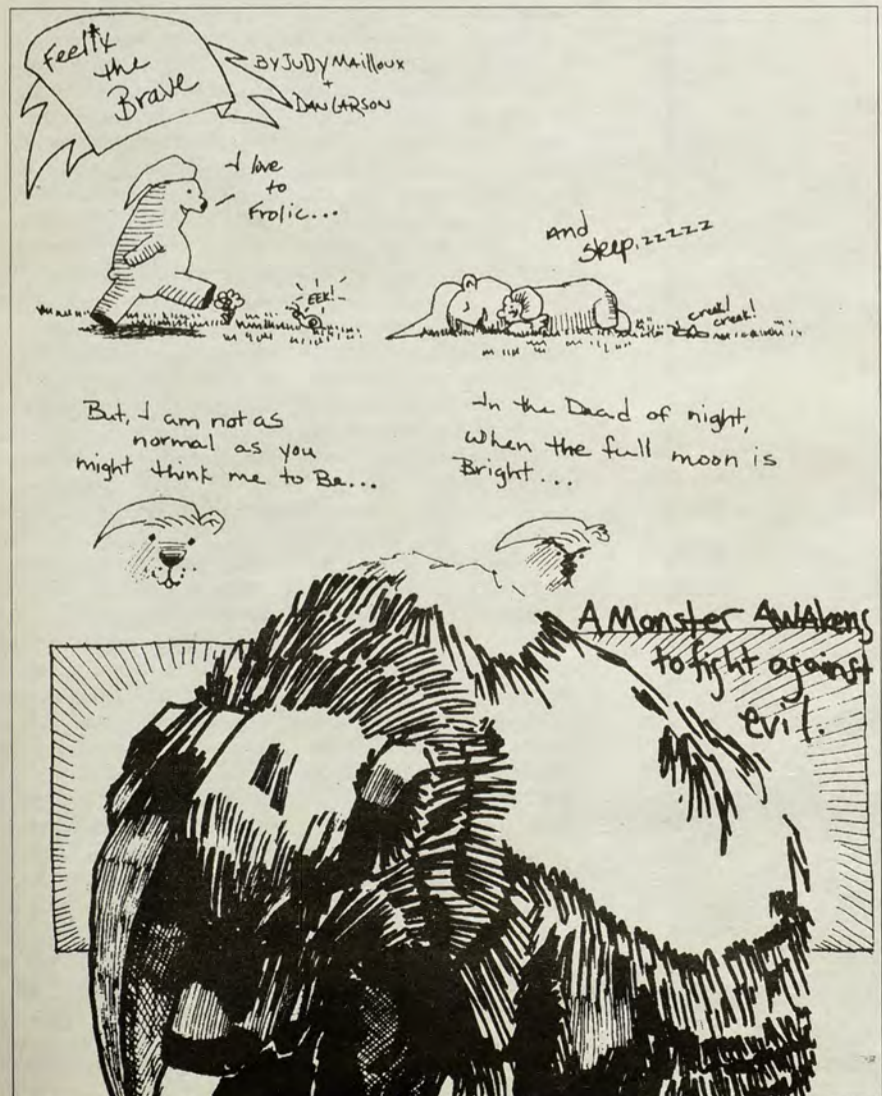 Feelix
the
Brave
BY JUDY MAILLOUX
+
DAN LARSON
I love
to
Frolic...
EEK!
And
sleep.zzzzz
creek!
creek!
But, I am not as
normal as you
might think me to Be...
In the Dead of night,
when the full moon is
Bright...
A Monster AWAkens
to fight against
evil.